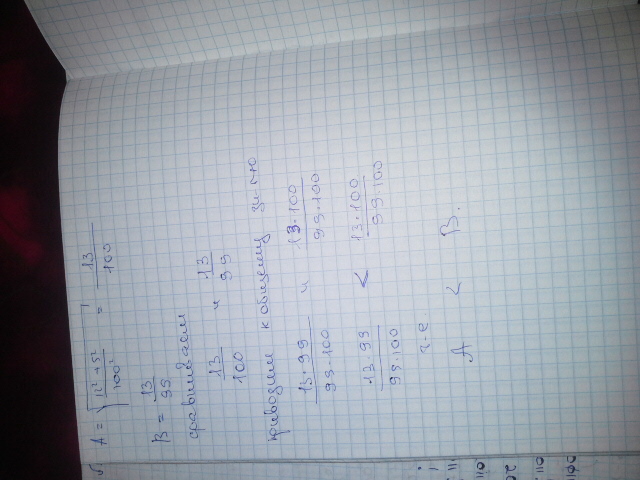 A = √(12² + 5² / 100²) = 13/100
B = 13/99
сравниваем
13/100 и 13/99
приводим к общему зн-лю
13·99 / 99·100 и 13·100 / 99·100
13·99 / 99·100 < 13·100 / 99·100
т-е
A < B.